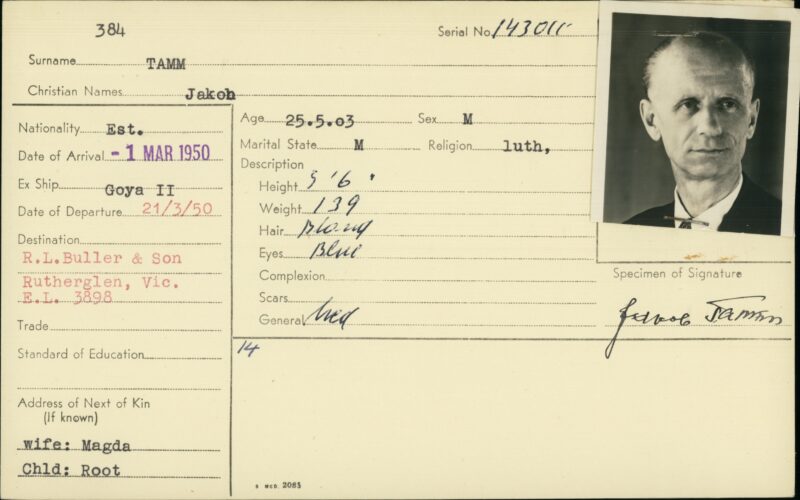 384
Serial No. 143011
Surname TAMM
Christian Names Jakob
Nationality Est.
Date of Arrival - 1 MAR 1950
Ex Ship Goya II
Date of Departure 21/3/50
Destination
R.L.Buller & Son
Rutherglen, Vic.
E.L. 3898
Trade
Standard of Education
Address of Next of Kin
(If known)
wife: Magda
Chld: Root
Age 25.5.03 Sex M
Marital State M Religion luth,
Description
Height 5'6"
Weight 139
Hair Blond
Eyes Blue
Complexion
Scars
General Med
14
Specimen of Signature
Jakob Tamm
2085